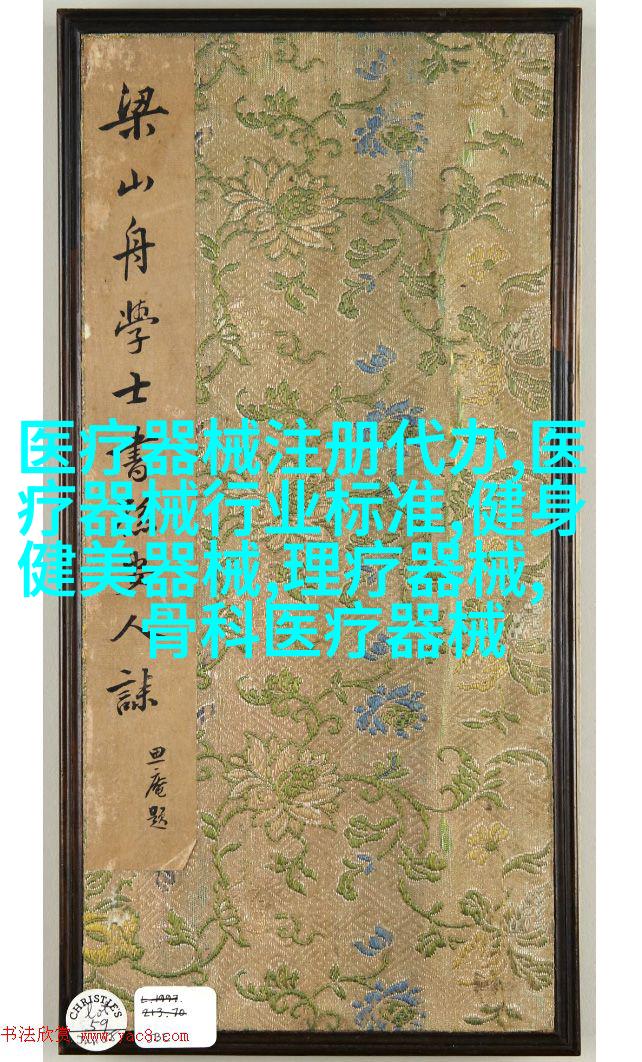 梁山舟學士書孫安人誄
庵題
医疗器械注册代办,医
疗器械行业标准,健身
健美器械,理疗器械,
骨科医疗器械
CHRISTIE'S
lot
59
L.1997.
213.70
书法欣赏 www.yac8.com